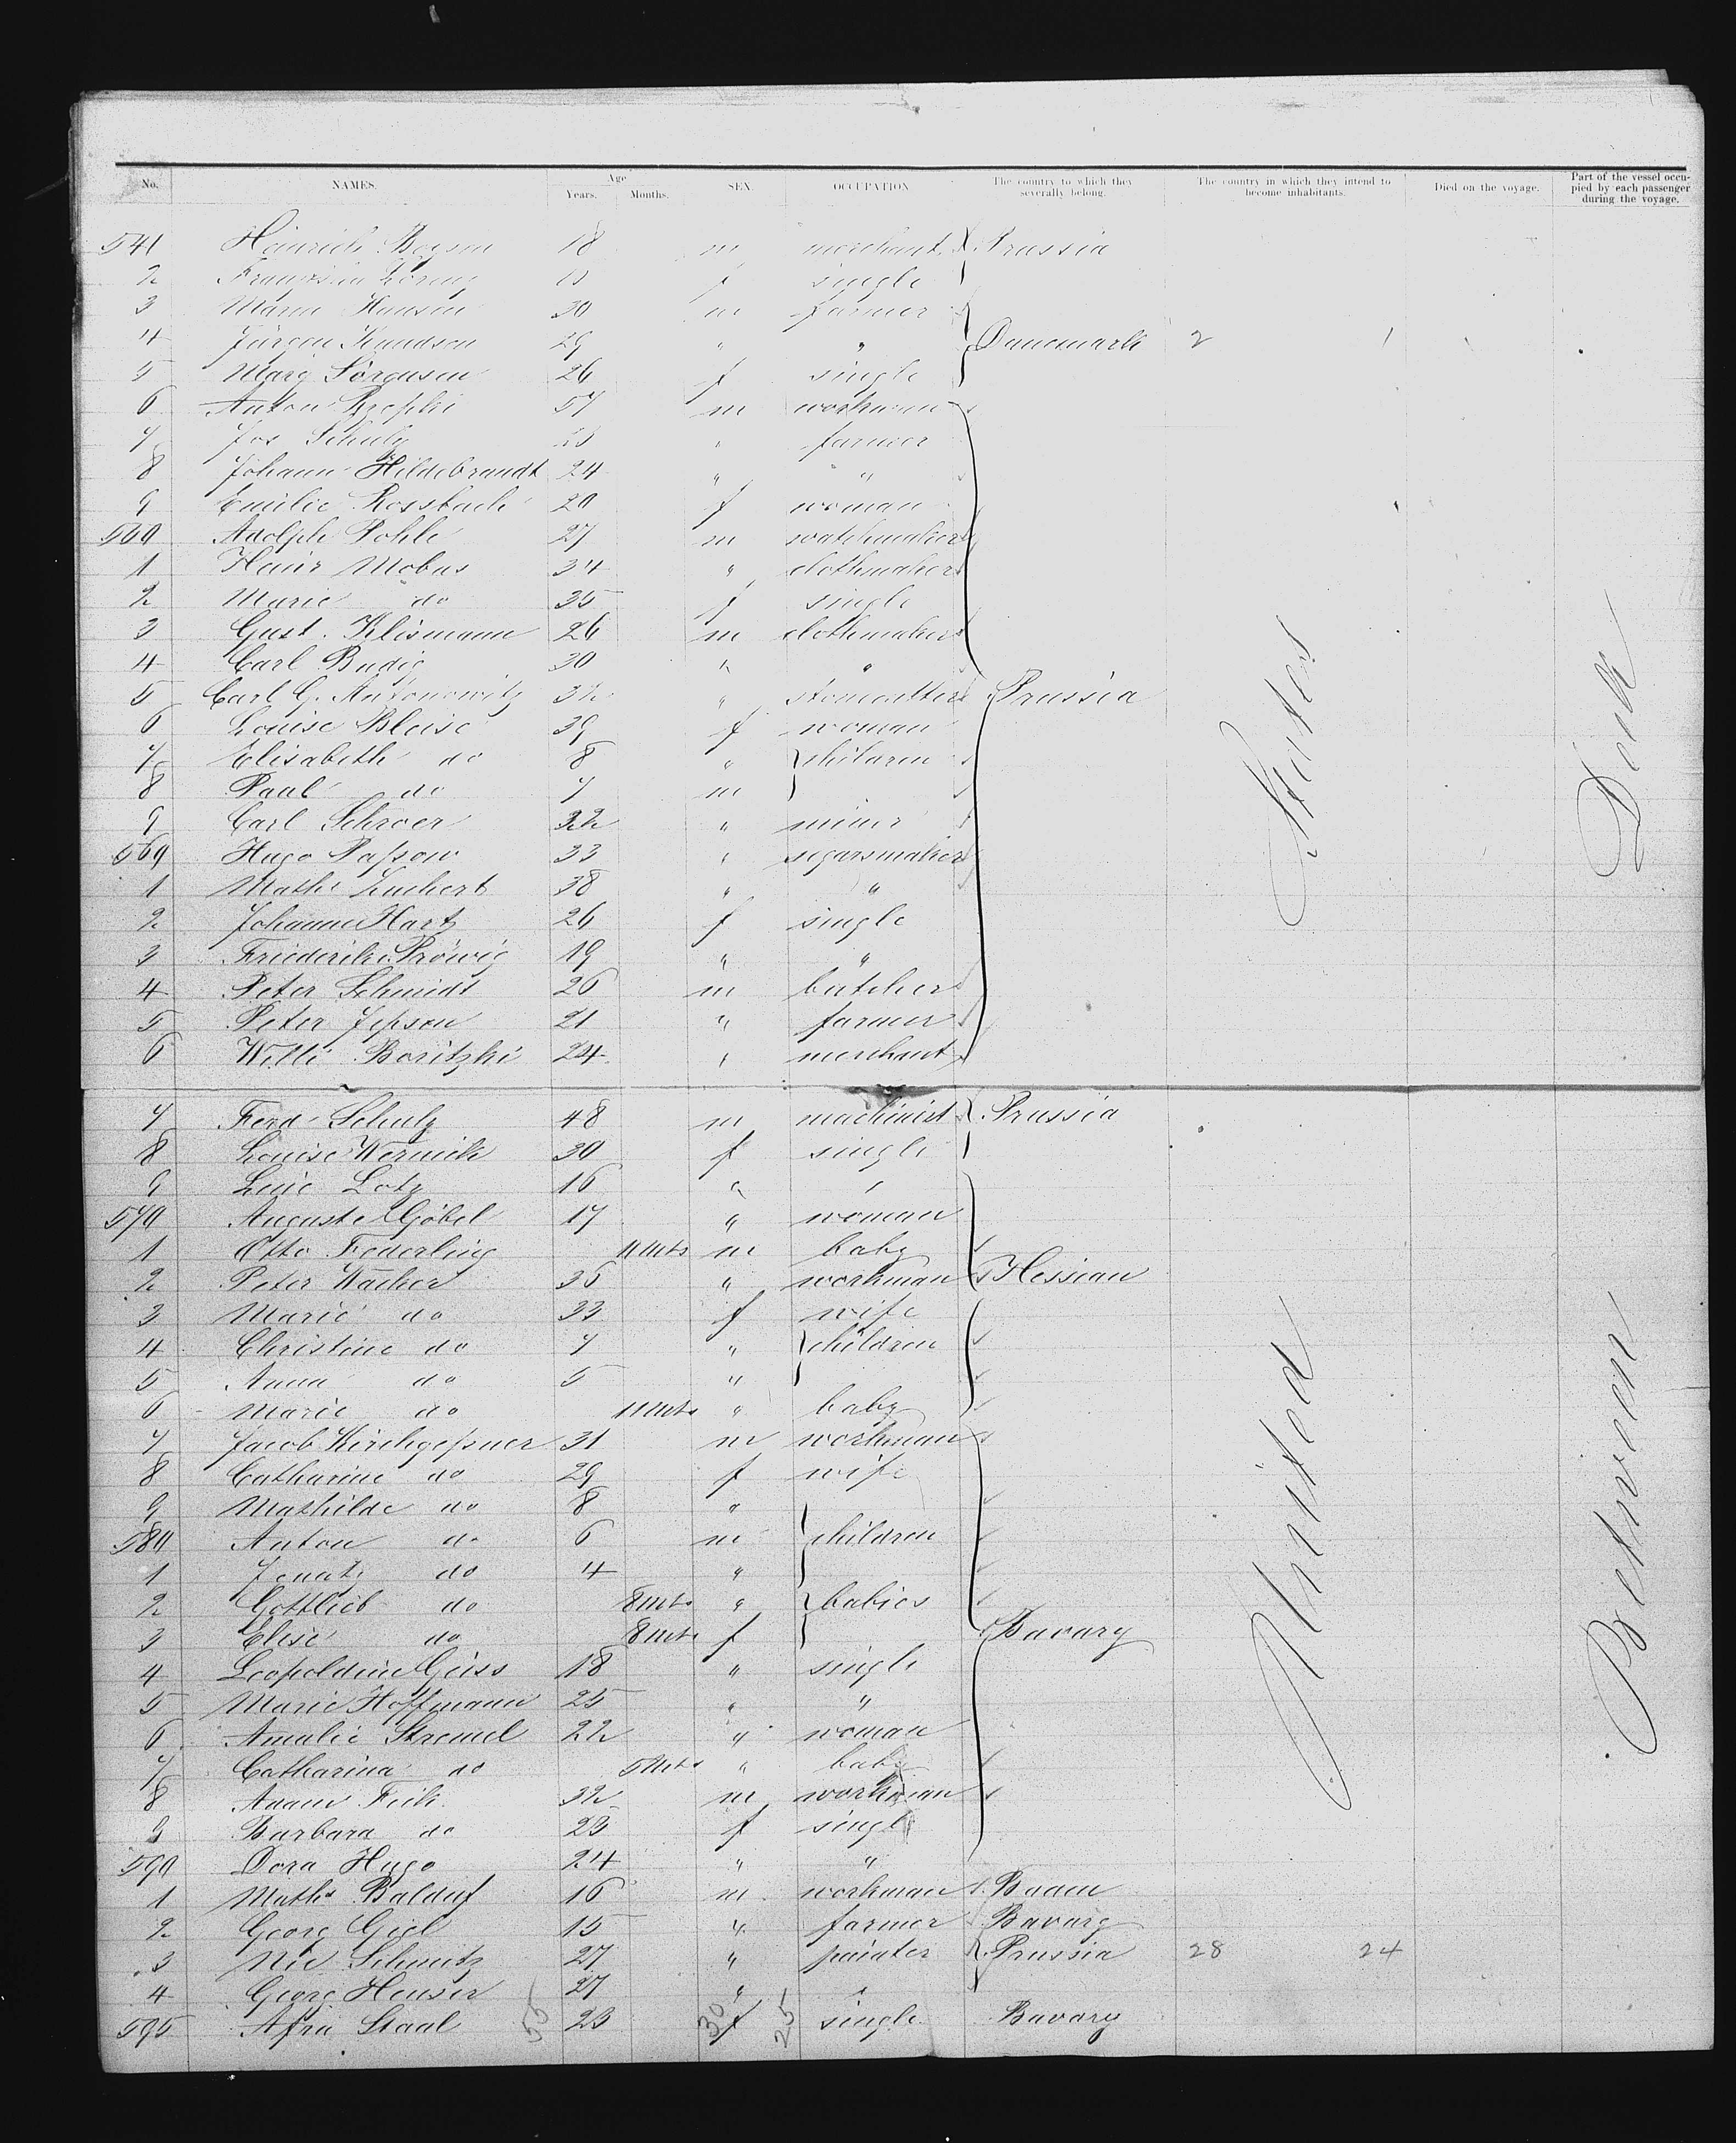 No. NAMES. Age Years. Months. SEX. OCCUPATION The country to which they severally belong. The country in which they intend to become inhabitants. Died on the voyage. Part of the vessel occupied by each passenger during the voyage.
541 Heinrich Boysen 18 m merchant Prussia
2 f single
3 Maren Hansen 30 m farmer
4 Jürgen Knudsen 29 " " Danemark 2 1
5 Marg Sörensen 26 f single
6 Anton 57 m workman
7 Jos Schulz " farmer
8 Johann Hildebrandt 24 " "
9 Emilie Rossbach 20 f woman
560 Adolph Pohle 27 m watchmaker
1 Heinr Mobus 34 " clothmaker
2 Marie do 35 f single
3 Gust. Klismann 26 m clothmaker
4 Carl Budig 30 " "
5 Carl G. Antonowitz 32 " stonecutter Prussia
6 Louise Bleise 39 f woman
7 Elisabeth do 8 " children
8 Paul do 7 m
9 Carl Schroer 32 " miner
569 Hugo Paßow 33 " segarsmaker
1 Mathi Luchert 38 " "
2 Johanne Hartz 26 f single
3 Friederike Prowig 19 " "
4 Peter Schmidt 26 m butcher
5 Peter Jepsen 21 " farmer
6 Willi Boritzki 24 " merchant
7 Ferd Schulz 48 m machinist Prussia
8 Louise Wernich 30 f single
9 Luie Lotz 16 " "
570 Auguste Göbel 17 " woman
1 Otto Federling 11 Mts m baby
2 Peter Wacker 36 " workman Hessian
3 Marie do 33 f wife
4 Christine do 7 " children
5 Anna do 5 "
6 Marie do 11 Mts " baby
7 Jacob Kirchgeßner 31 m workman
8 Catharine do 29 f wife
9 Mathilde do 8 "
580 Anton do 6 m children
1 Ignatz do 4 "
2 Gottlieb do 8 Mts " babies
3 Elise do 8 Mts f Bavary
4 Leopoldine Giss 18 " single
5 Marie Hoffmann 25 " "
6 Amalie Stremel 22 " woman
7 Catharina do 5 Mts " baby
8 Adam Fick 32 m workman
9 Barbara do 25 f single
590 Dora Hugo 24 " "
1 Maths Balduf 16 m workman Baden
2 Georg Giel 15 " farmer Bavary
3 Nic Schmitz 27 " painter Prussia 28 24
4 Georg Heuser 27 " "
595 Afra Staal 23 f single Bavary
55 30 25
United States
Between Deck